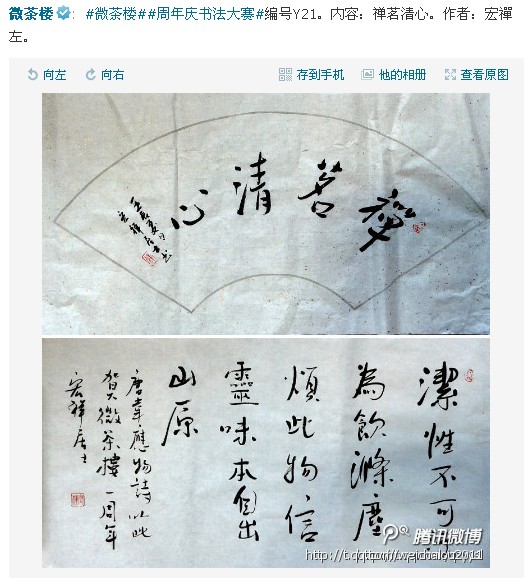 微茶楼: #微茶楼##周年庆书法大赛#编号Y21。内容:禅茗清心。作者:宏禪
左。
向左 向右 存到手机 他的相册 查看原图
禪茗清心
潔性不可
為飲滌塵
煩此物信
靈味本自出
山原
唐韋應物詩以此
賀微茶樓一周年
宏祥居士
腾讯微博